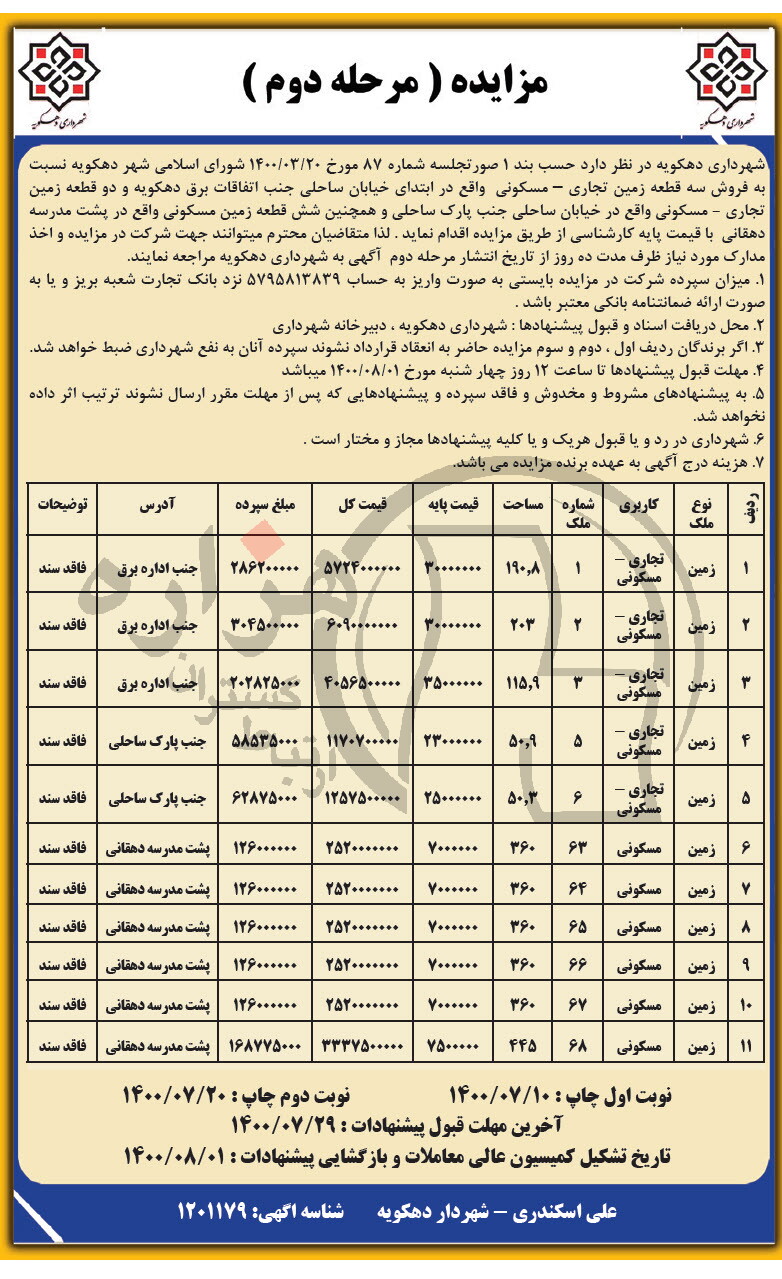 مزایده ( مرحله دوم )
شهرداری دهکویه
شهرداری دهکویه
شهرداری دهکویه در نظر دارد حسب بند ۱ صورتجلسه شماره ۸۷ مورخ ۱۴۰۰/۰۳/۲۰ شورای اسلامی شهر دهکویه نسبت
به فروش سه قطعه زمین تجاری – مسکونی واقع در ابتدای خیابان ساحلی جنب اتفاقات برق دهکویه و دو قطعه زمین
تجاری - مسکونی واقع در خیابان ساحلی جنب پارک ساحلی و همچنین شش قطعه زمین مسکونی واقع در پشت مدرسه
دهقانی با قیمت پایه کارشناسی از طریق مزایده اقدام نماید . لذا متقاضیان محترم میتوانند جهت شرکت در مزایده و اخذ
مدارک مورد نیاز ظرف مدت ده روز از تاریخ انتشار مرحله دوم آگهی به شهرداری دهکویه مراجعه نمایند.
۱. میزان سپرده شرکت در مزایده بایستی به صورت واریز به حساب ۵۷۹۵۸۱۳۸۳۹ نزد بانک تجارت شعبه بریز و یا به
صورت ارائه ضمانتنامه بانکی معتبر باشد .
۲. محل دریافت اسناد و قبول پیشنهادها : شهرداری دهکویه ، دبیرخانه شهرداری
۳. اگر برندگان ردیف اول ، دوم و سوم مزایده حاضر به انعقاد قرارداد نشوند سپرده آنان به نفع شهرداری ضبط خواهد شد.
۴. مهلت قبول پیشنهادها تا ساعت ۱۲ روز چهار شنبه مورخ ۱۴۰۰/۰۸/۰۱ میباشد
۵. به پیشنهادهای مشروط و مخدوش و فاقد سپرده و پیشنهادهایی که پس از مهلت مقرر ارسال نشوند ترتیب اثر داده
نخواهد شد.
۶. شهرداری در رد و یا قبول هریک و یا کلیه پیشنهادها مجاز و مختار است .
۷. هزینه درج آگهی به عهده برنده مزایده می باشد.
ردیف نوع ملک کاربری شماره ملک مساحت قیمت پایه قیمت کل مبلغ سپرده آدرس توضیحات
۱ زمین تجاری – مسکونی ۱ ۱۹۰,۸ ۳۰۰۰۰۰۰۰ ۵۷۲۴۰۰۰۰۰۰ ۲۸۶۲۰۰۰۰۰ جنب اداره برق فاقد سند
۲ زمین تجاری – مسکونی ۲ ۲۰۳ ۳۰۰۰۰۰۰۰ ۶۰۹۰۰۰۰۰۰۰ ۳۰۴۵۰۰۰۰۰ جنب اداره برق فاقد سند
۳ زمین تجاری – مسکونی ۳ ۱۱۵,۹ ۳۵۰۰۰۰۰۰ ۴۰۵۶۵۰۰۰۰۰ ۲۰۲۸۲۵۰۰۰ جنب اداره برق فاقد سند
۴ زمین تجاری – مسکونی ۵ ۵۰,۹ ۲۳۰۰۰۰۰۰ ۱۱۷۰۷۰۰۰۰۰ ۵۸۵۳۵۰۰۰ جنب پارک ساحلی فاقد سند
۵ زمین تجاری – مسکونی ۶ ۵۰,۳ ۲۵۰۰۰۰۰۰ ۱۲۵۷۵۰۰۰۰۰ ۶۲۸۷۵۰۰۰ جنب پارک ساحلی فاقد سند
۶ زمین مسکونی ۶۳ ۳۶۰ ۷۰۰۰۰۰۰ ۲۵۲۰۰۰۰۰۰۰ ۱۲۶۰۰۰۰۰۰ پشت مدرسه دهقانی فاقد سند
۷ زمین مسکونی ۶۴ ۳۶۰ ۷۰۰۰۰۰۰ ۲۵۲۰۰۰۰۰۰۰ ۱۲۶۰۰۰۰۰۰ پشت مدرسه دهقانی فاقد سند
۸ زمین مسکونی ۶۵ ۳۶۰ ۷۰۰۰۰۰۰ ۲۵۲۰۰۰۰۰۰۰ ۱۲۶۰۰۰۰۰۰ پشت مدرسه دهقانی فاقد سند
۹ زمین مسکونی ۶۶ ۳۶۰ ۷۰۰۰۰۰۰ ۲۵۲۰۰۰۰۰۰۰ ۱۲۶۰۰۰۰۰۰ پشت مدرسه دهقانی فاقد سند
۱۰ زمین مسکونی ۶۷ ۳۶۰ ۷۰۰۰۰۰۰ ۲۵۲۰۰۰۰۰۰۰ ۱۲۶۰۰۰۰۰۰ پشت مدرسه دهقانی فاقد سند
۱۱ زمین مسکونی ۶۸ ۴۴۵ ۷۵۰۰۰۰۰ ۳۳۳۷۵۰۰۰۰۰ ۱۶۸۷۷۵۰۰۰ پشت مدرسه دهقانی فاقد سند
هزاره
گستران
ارتباط
نوبت اول چاپ : ۱۴۰۰/۰۷/۱۰ نوبت دوم چاپ : ۱۴۰۰/۰۷/۲۰
آخرین مهلت قبول پیشنهادات : ۱۴۰۰/۰۷/۲۹
تاریخ تشکیل کمیسیون عالی معاملات و بازگشایی پیشنهادات : ۱۴۰۰/۰۸/۰۱
علی اسکندری – شهردار دهکویه شناسه اگهی: ۱۲۰۱۱۷۹